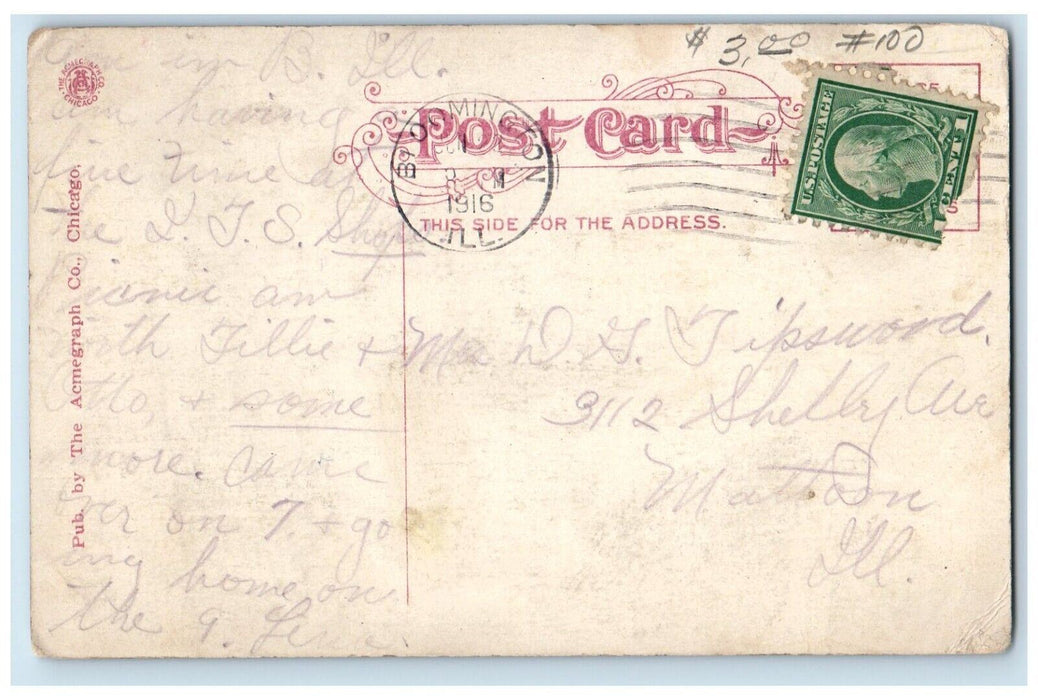 $ 3.00 #100
THE ACMEGRAPH CO. CHICAGO
Pub. by The Acmegraph Co., Chicago.
Post Card
THIS SIDE FOR THE ADDRESS.
BLOOMINGTON
1916
ILL.
U.S. POSTAGE
1 CENT
am in B. Ill.
am having
fine time at
the I. T. S. Shops
Picnic am
with Tillie +
Otto, + some
more. came
over on 7. + go
ing home on
the 9. Lena
D. G. Tipsword.
3112 Shelby Ave
Mattoon
Ill.